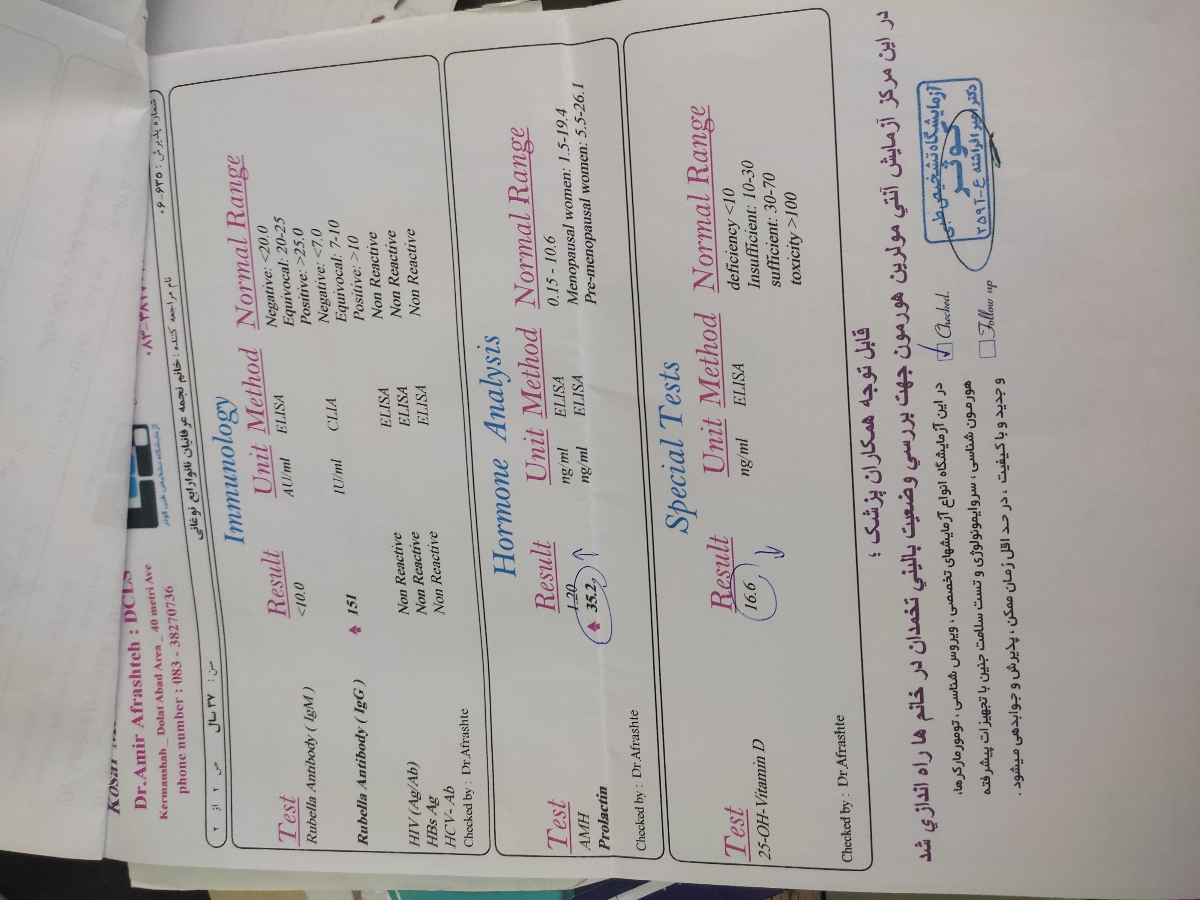 Dr.Amir Afrashteh : DCLS
Kermanshah _ Dolat Abad Area _ 40 metri Ave
phone number : 083 - 38270736
آزمایشگاه تشخیص طبی کوثر
شماره پذیرش : ۶۳۵-۰۶
نام مراجعه کننده : خانم نجمه عرفانیان نانوازابع نوغانی
سن : ۳۷ سال
ص ۲ از ۲
Immunology
Test Result Unit Method Normal Range
Rubella Antibody ( IgM ) <10.0 AU/ml ELISA Negative: <20.0
Equivocal: 20-25
Positive: >25.0
Rubella Antibody ( IgG ) 151 IU/ml CLIA Negative: <7.0
Equivocal: 7-10
Positive: >10
HIV (Ag/Ab) Non Reactive ELISA Non Reactive
HBs Ag Non Reactive ELISA Non Reactive
HCV- Ab Non Reactive ELISA Non Reactive
Checked by : Dr.Afrashte
Hormone Analysis
Test Result Unit Method Normal Range
AMH 1.20 ng/ml ELISA 0.15 - 10.6
Prolactin 35.2 ng/ml ELISA Menopausal women: 1.5-19.4
Pre-menopausal women: 5.5-26.1
Checked by : Dr.Afrashte
Special Tests
Test Result Unit Method Normal Range
25-OH-Vitamin D 16.6 ng/ml ELISA deficiency <10
Insufficient: 10-30
sufficient: 30-70
toxicity >100
Checked by : Dr.Afrashte
قابل توجه همکاران پزشک ؛
در این مرکز آزمایش آنتی مولرین هورمون جهت بررسی وضعیت بالینی تخمدان در خانم ها راه اندازی شد
در این آزمایشگاه انواع آزمایشهای تخصصی ، ویروس شناسی ، تومور مارکرها،
هورمون شناسی ، سروایمونولوژی و تست سلامت جنین با تجهیزات پیشرفته
و جدید و با کیفیت ، در حد اقل زمان ممکن ، پذیرش و جوابدهی میشود .
Checked.
Follow up
آزمایشگاه تشخیص طبی
کوثر
دکتر امیر افراشته ع-۲۵۹۲